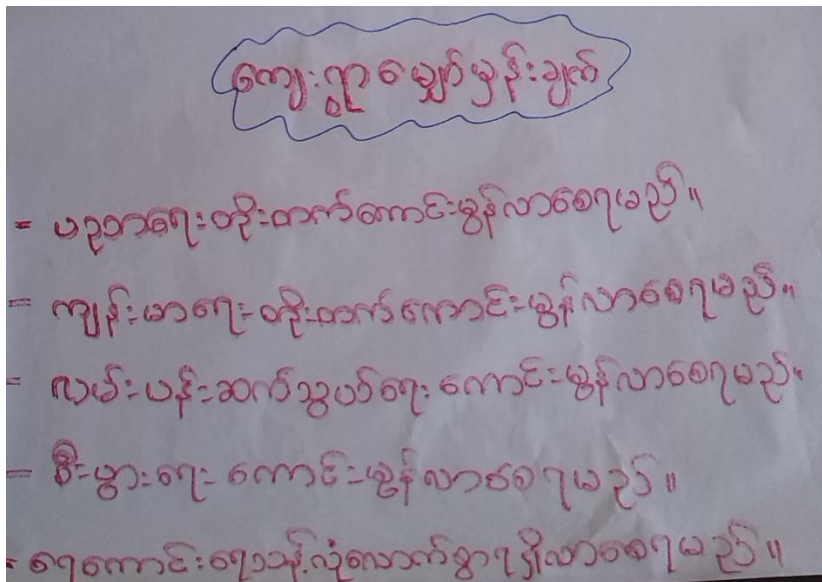 ကျေးရွာမျှော်မှန်းချက်
- ပညာရေးတိုးတက်ကောင်းမွန်လာစေရမည်။
- ကျန်းမာရေးတိုးတက်ကောင်းမွန်လာစေရမည်။
- လမ်းပန်းဆက်သွယ်ရေးကောင်းမွန်လာစေရမည်။
- စီးပွားရေးကောင်းမွန်လာစေရမည်။
- ရေကောင်းရေသန့်လုံလောက်စွာရရှိလာစေရမည်။